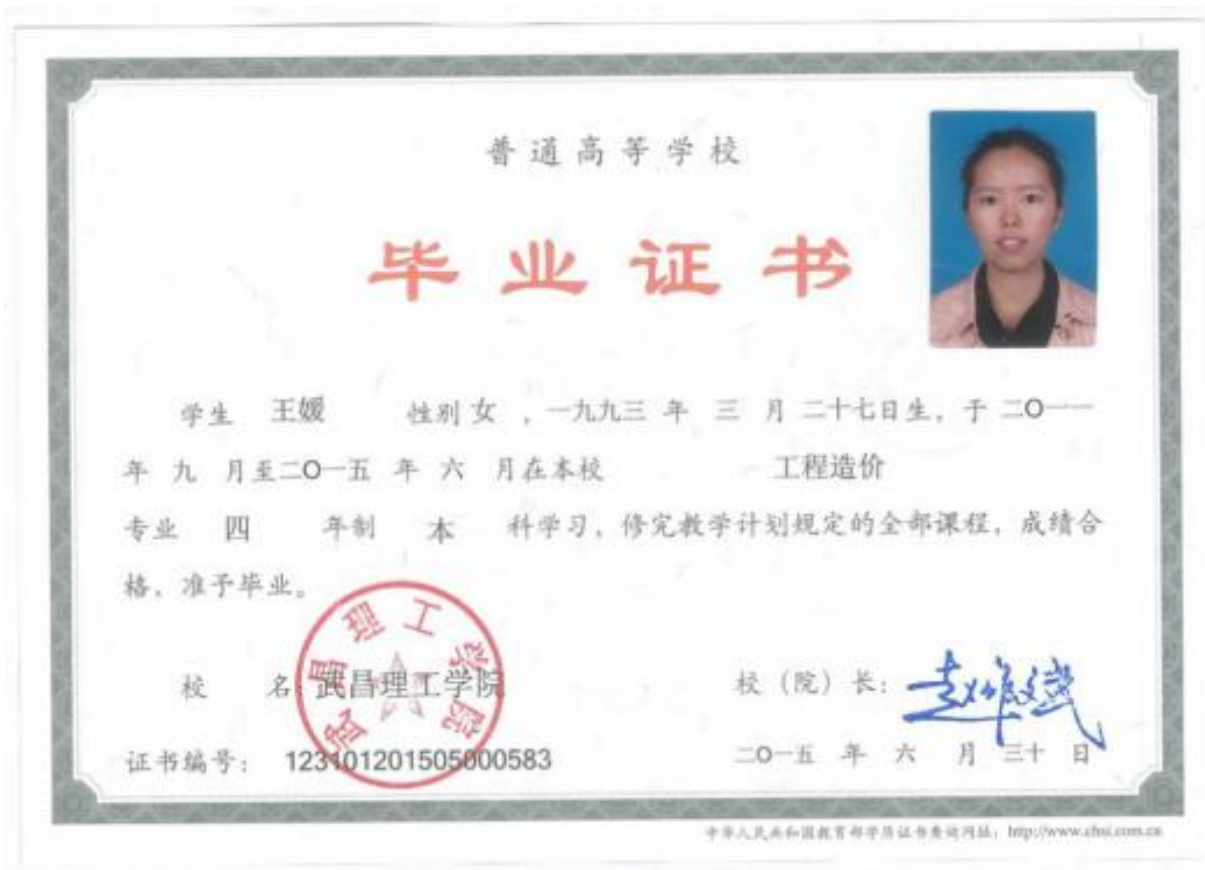 普通高等学校
毕业证书
学生 王媛 性别 女 ，一九九三 年 三 月 二十七日生，于 二O一一
年 九 月至二O一五 年 六 月在本校 工程造价
专业 四 年制 本 科学习，修完教学计划规定的全部课程，成绩合
格，准予毕业。
武昌理工学院
校 名：武昌理工学院
校（院）长：赵作斌
证书编号： 123101201505000583
二O一五 年 六 月 三十 日
中华人民共和国教育部学历证书查询网址：http://www.chsi.com.cn